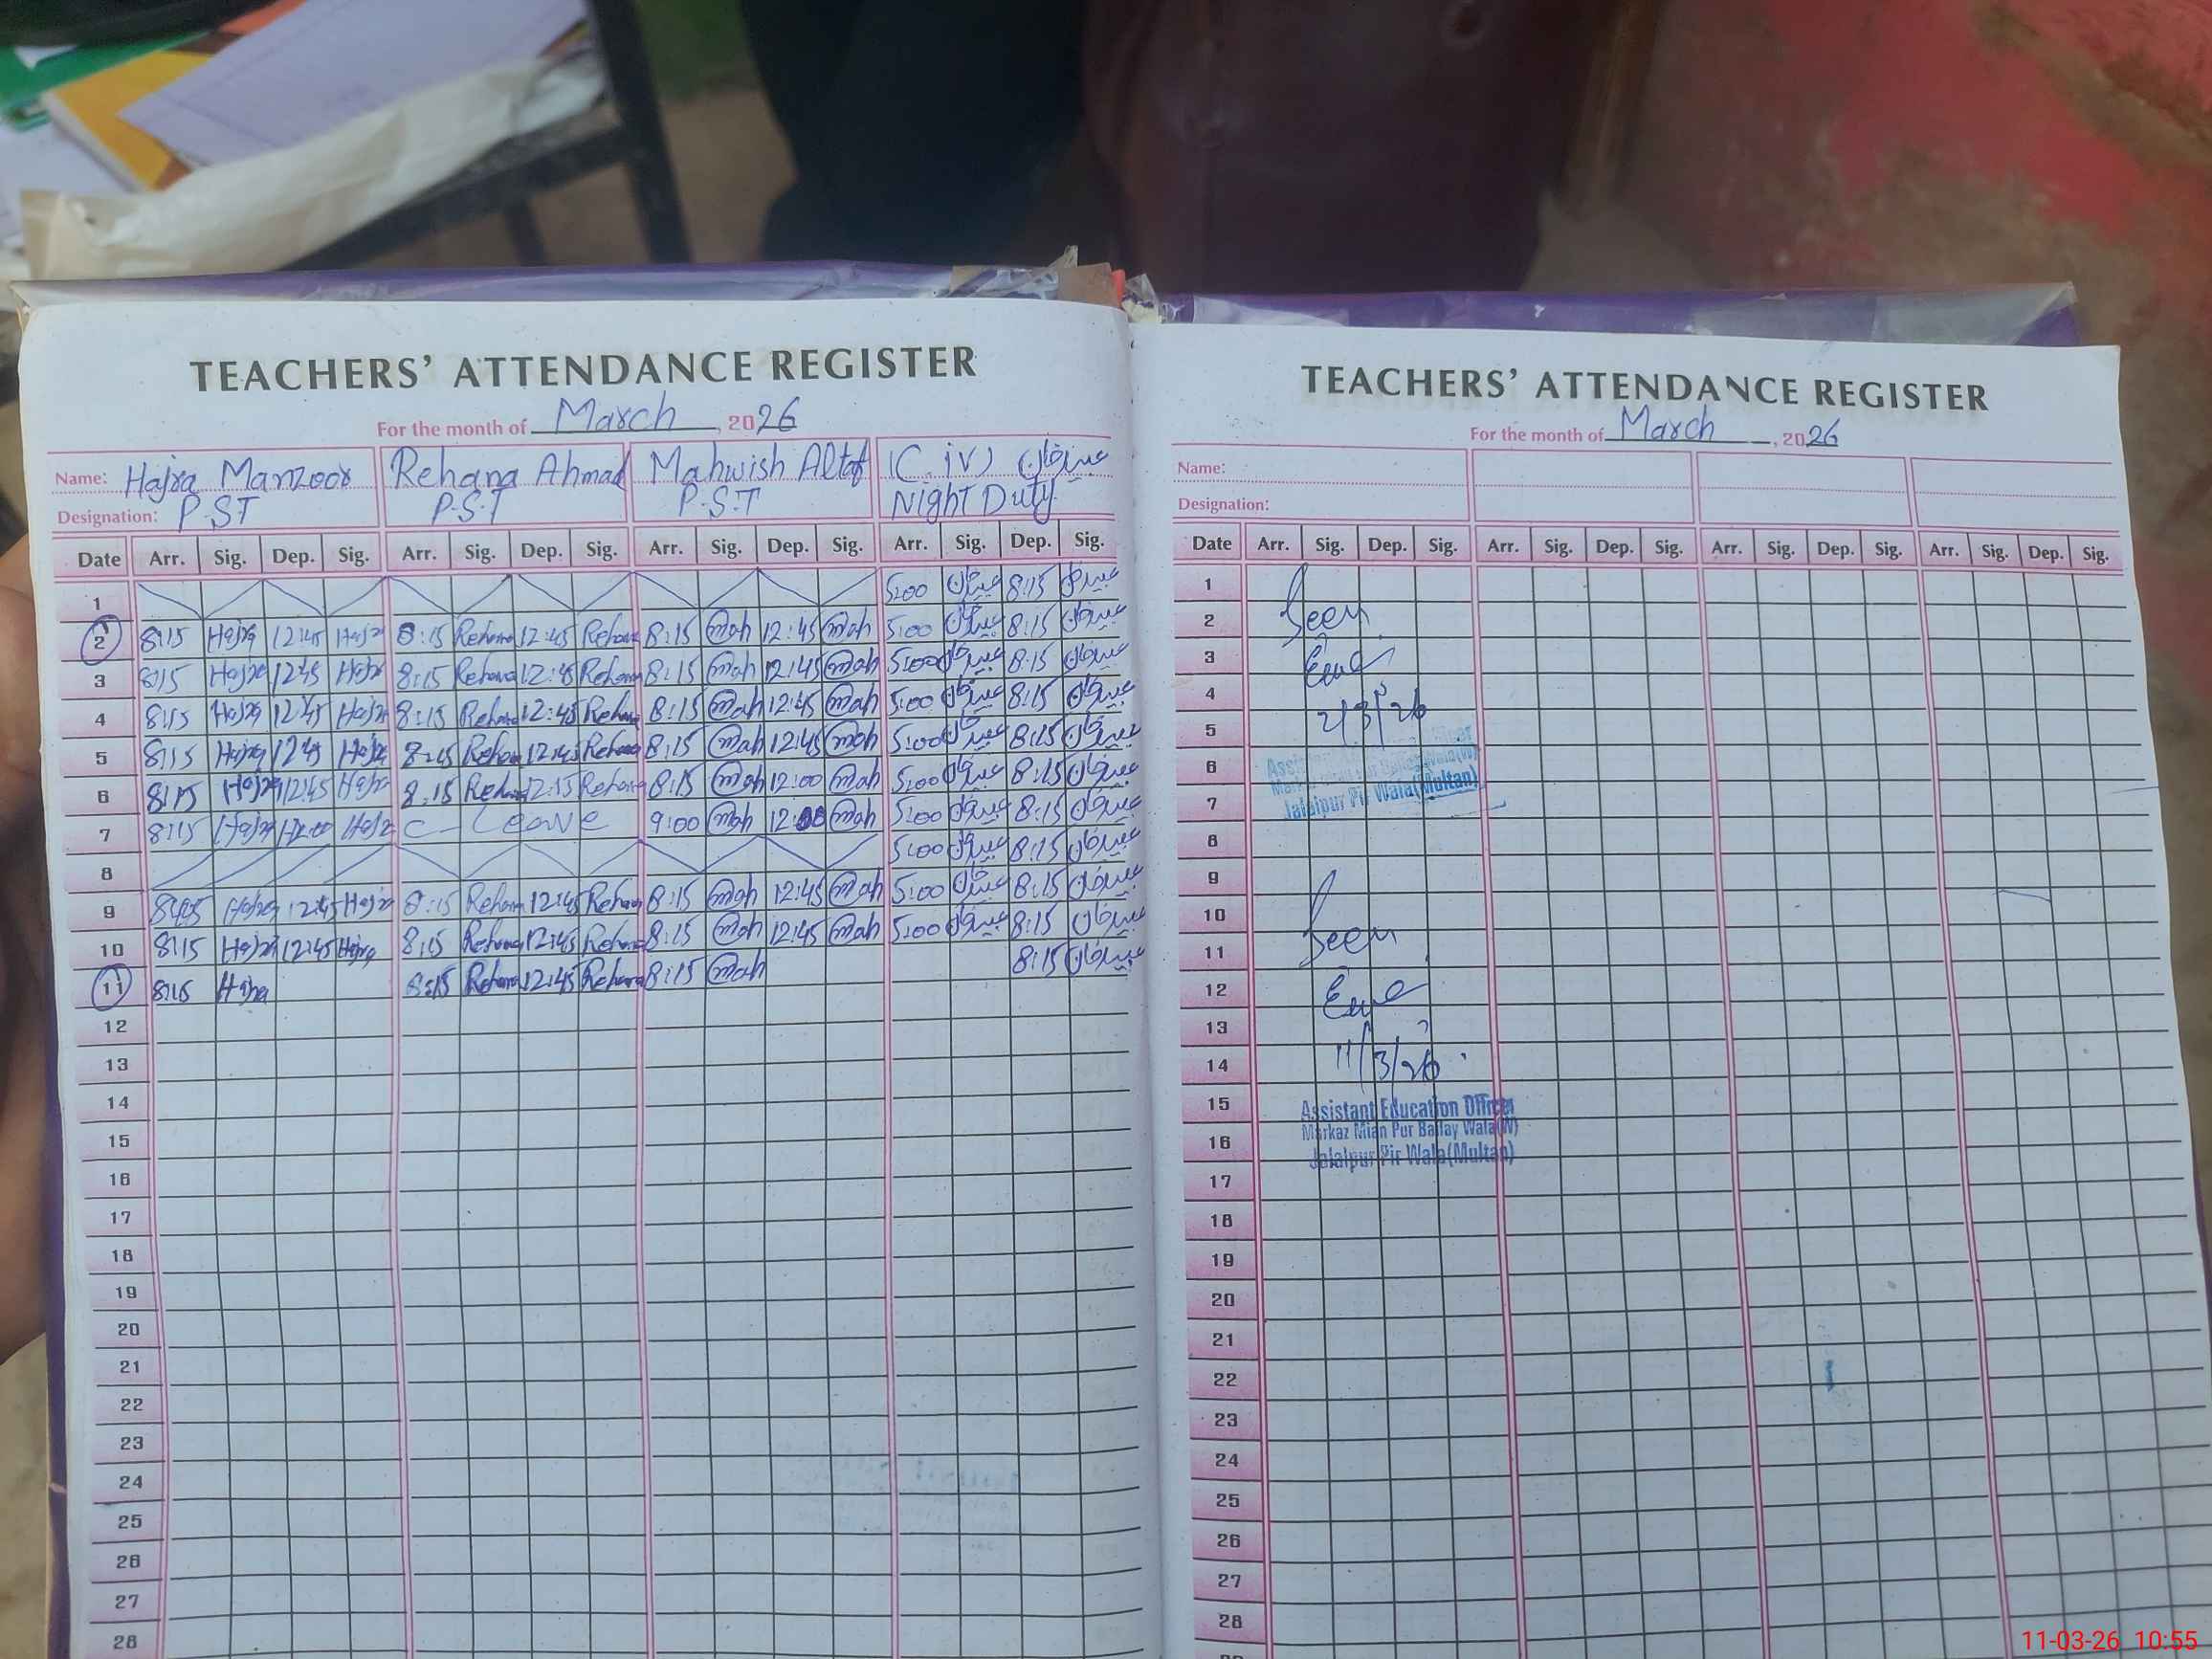 TEACHERS' ATTENDANCE REGISTER
For the month of March, 2026
Name: Hajra Manzoor Rehana Ahmad Mahwish Altaf (C.iv)
Designation: P.S.T P.S.T P.S.T Night Duty
Date Arr. Sig. Dep. Sig. Arr. Sig. Dep. Sig. Arr. Sig. Dep. Sig. Arr. Sig. Dep. Sig.
1 5:00 8:15
2 8:15 Hajra 12:45 Hajra 8:15 Rehana 12:45 Rehana 8:15 Mah 12:45 Mah 5:00 8:15
3 8:15 Hajra 12:45 Hajra 8:15 Rehana 12:45 Rehana 8:15 Mah 12:45 Mah 5:00 8:15
4 8:15 Hajra 12:45 Hajra 8:15 Rehana 12:45 Rehana 8:15 Mah 12:45 Mah 5:00 8:15
5 8:15 Hajra 12:45 Hajra Rehana 12:45 Rehana 8:15 Mah 12:45 Mah 5:00 8:15
6 8:15 Hajra 12:45 Hajra 8:15 Rehana Rehana 8:15 Mah 12:00 Mah 5:00 8:15
7 8:15 Hajra 12:00 Hajra C-Leave 9:00 Mah 12:00 Mah 5:00 8:15
8 5:00 8:15
9 Hajra 12:45 Hajra 8:15 Rehana 12:45 Rehana 8:15 Mah 12:45 Mah 5:00 8:15
10 8:15 Hajra 12:45 Hajra 8:15 Rehana 12:45 Rehana 8:15 Mah 12:45 Mah 5:00 8:15
11 8:15 Hajra 8:15 Rehana 12:45 Rehana 8:15 Mah 8:15
12
13
14
15
16
17
18
19
20
21
22
23
24
25
26
27
28
TEACHERS' ATTENDANCE REGISTER
For the month of March, 2026
Name:
Designation:
Date Arr. Sig. Dep. Sig. Arr. Sig. Dep. Sig. Arr. Sig. Dep. Sig. Arr. Sig. Dep. Sig.
1
2 Seen
3
4 2/3/26
5
6
7 Jalalpur Pir Wala(Multan)
8
9
10
11 Seen
12
13
14 11/3/26
15 Assistant Education Officer
16 Markaz Mian Pur Ballay Wala(W)
Jalalpur Pir Wala(Multan)
17
18
19
20
21
22
23
24
25
26
27
28
11-03-26 10:55